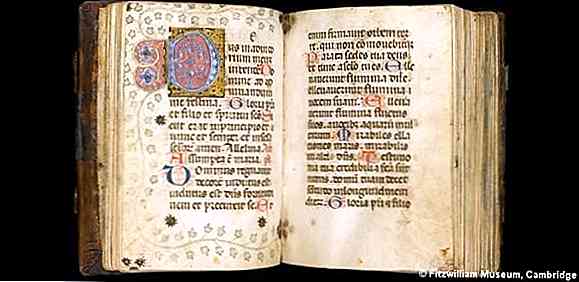 Deus in adiuto
rium meum
intende
me festina. Gloria pri
et filio et spiritui san
cut erat in principio et
nunc et semper et in secu
Alleluia
Assumpta e maria.
Dominus regnavit
decore indutus est
indutus est dns fortitudi
nem et precinxit se Et
enim firmavit orbem ter
re. qui non comovebitur
Parata sedes tua deus
ex tunc a seclo tu es. Ele
vaverunt flumina dne. e
levaverunt flumina
vocem suam. Eleva
verunt flumina fluctus
suos. a vocibus aquarum mul
tarum. Mirabiles ela
tiones maris. mirabilis
in altis dns. Testimo
nia tua credibilia facta sunt
nimis. domum tuam decet
sanctitudo in longitudinem
dierum. Gloria pri et filio
© Fitzwilliam Museum, Cambridge